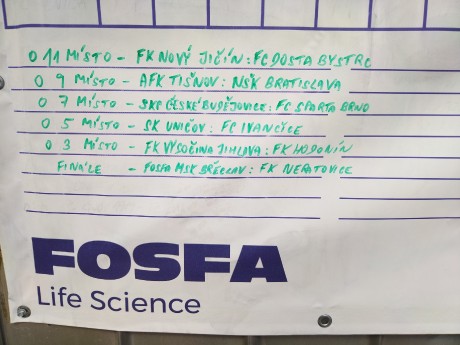 O 11 MÍSTO - FK NOVÝ JIČÍN : FC DOSTA BYSTRC
O 9 MÍSTO - AFK TIŠNOV : NŠK BRATISLAVA
O 7 MÍSTO - SKP ČESKÉ BUDĚJOVICE : FC SPARTA BRNO
O 5 MÍSTO - SK UNIČOV : FC IVANČICE
O 3 MÍSTO - FK VYSOČINA JIHLAVA : FK HODONÍN
FINÁLE - FOSFA MSK BŘECLAV : FK NERATOVICE
FOSFA
Life Science